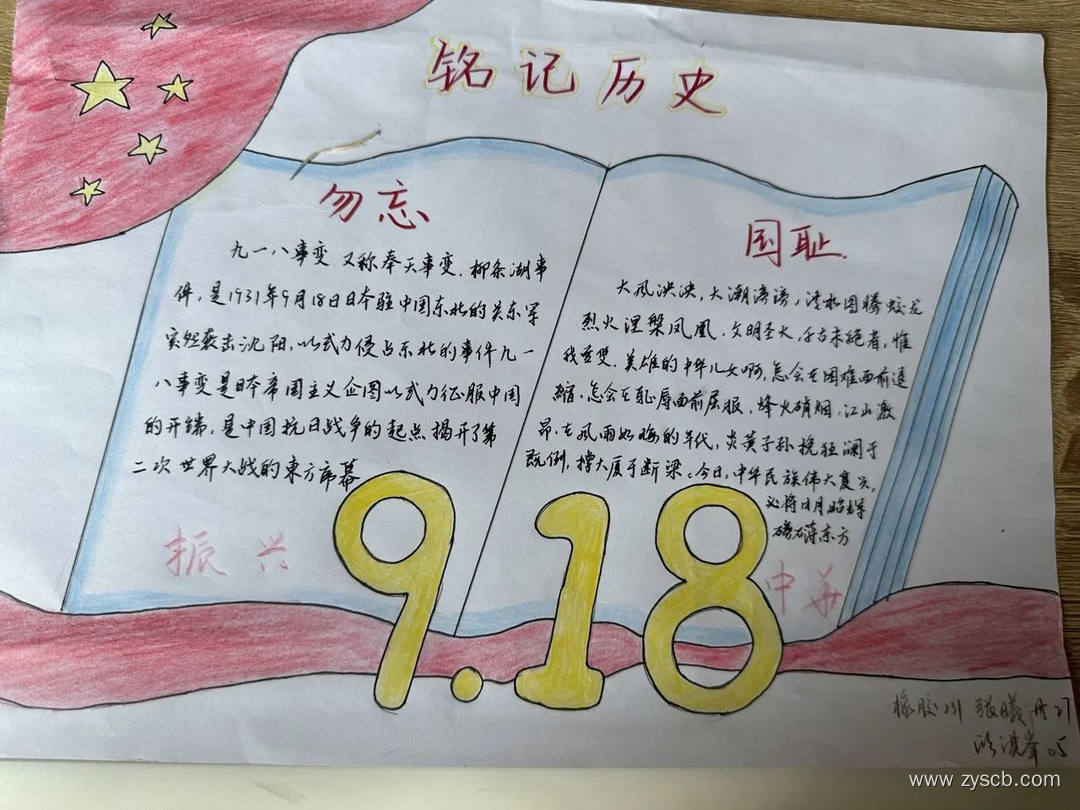 铭记历史
勿忘
九一八事变 又称奉天事变.柳条湖事
件,是1931年9月18日日本驻中国东北的关东军
突然袭击沈阳,以武力侵占东北的事件九一
八事变是日本帝国主义企图以武力征服中国
的开端,是中国抗日战争的起点 揭开了第
二次世界大战的東方序幕
振兴
国耻.
大风泱泱,大潮滂滂,洪水图腾蛟龙
烈火涅槃凤凰.文明圣火,千古未绝者,惟
我无双.英雄的中华儿女啊,怎会在困难面前退
缩.怎会在耻辱面前屈服.烽火硝烟,江山激
昂.在风雨如晦的年代,炎黄子孙挽狂澜于
既倒,撑大厦于断梁。今日,中华民族伟大复兴,
必将日月昭
磅礴东方
中华
9.18
橡胶231 张曦丹27
洪峯05
www.zyscb.com